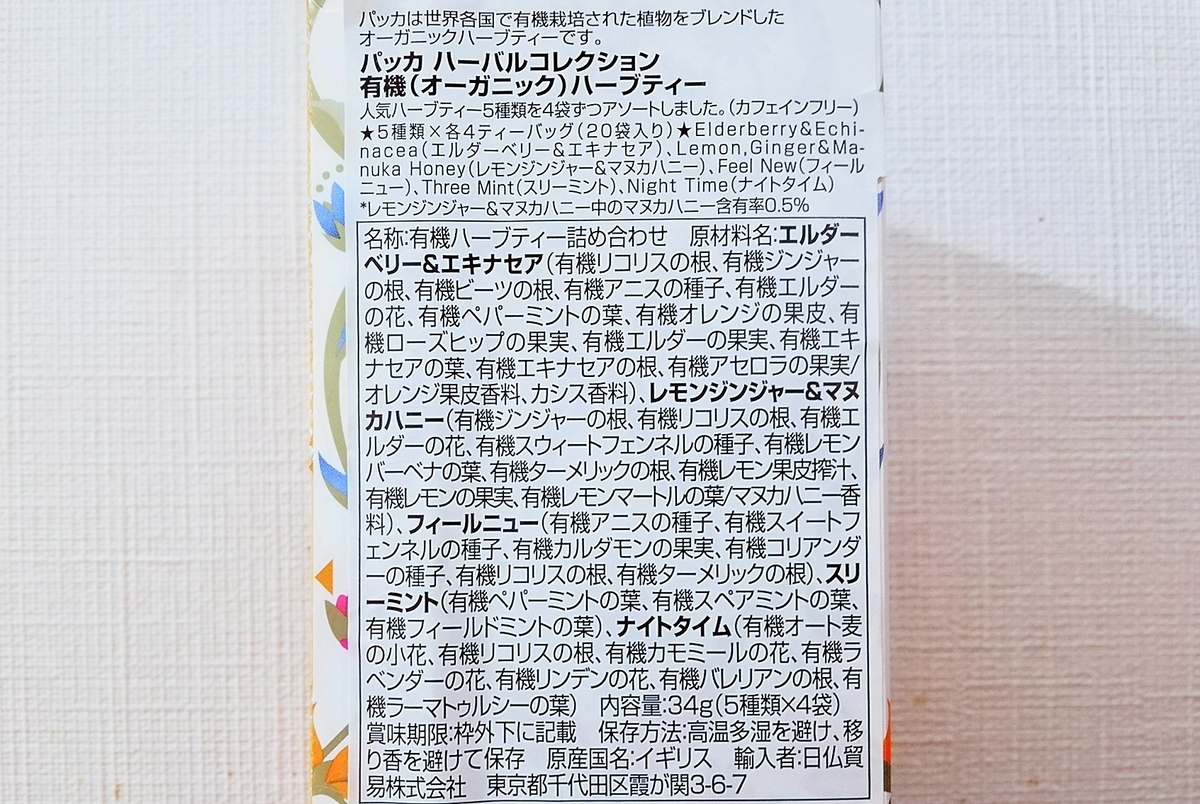 パッカは世界各国で有機栽培された植物をブレンドした
オーガニックハーブティーです。
パッカ ハーバルコレクション
有機(オーガニック)ハーブティー
人気ハーブティー5種類を4袋ずつアソートしました。(カフェインフリー)
★5種類×各4ティーバッグ(20袋入り)★Elderberry&Echi-
nacea(エルダーベリー&エキナセア)、Lemon,Ginger&Ma-
nuka Honey(レモンジンジャー&マヌカハニー)、Feel New(フィール
ニュー)、Three Mint(スリーミント)、Night Time(ナイトタイム)
*レモンジンジャー&マヌカハニー中のマヌカハニー含有率0.5%
名称:有機ハーブティー詰め合わせ 原材料名:エルダー
ベリー&エキナセア(有機リコリスの根、有機ジンジャー
の根、有機ビーツの根、有機アニスの種子、有機エルダー
の花、有機ペパーミントの葉、有機オレンジの果皮、有
機ローズヒップの果実、有機エルダーの果実、有機エキ
ナセアの葉、有機エキナセアの根、有機アセロラの果実/
オレンジ果皮香料、カシス香料)、レモンジンジャー&マヌ
カハニー(有機ジンジャーの根、有機リコリスの根、有機エ
ルダーの花、有機スウィートフェンネルの種子、有機レモン
バーベナの葉、有機ターメリックの根、有機レモン果皮搾汁、
有機レモンの果実、有機レモンマートルの葉/マヌカハニー香
料)、フィールニュー(有機アニスの種子、有機スイートフ
ェンネルの種子、有機カルダモンの果実、有機コリアンダ
ーの種子、有機リコリスの根、有機ターメリックの根)、スリ
ーミント(有機ペパーミントの葉、有機スペアミントの葉、
有機フィールドミントの葉)、ナイトタイム(有機オート麦
の小花、有機リコリスの根、有機カモミールの花、有機ラ
ベンダーの花、有機リンデンの花、有機バレリアンの根、有
機ラーマトゥルシーの葉) 内容量:34g(5種類×4袋)
賞味期限:枠外下に記載 保存方法:高温多湿を避け、移
り香を避けて保存 原産国名:イギリス 輸入者:日仏貿
易株式会社 東京都千代田区霞が関3-6-7